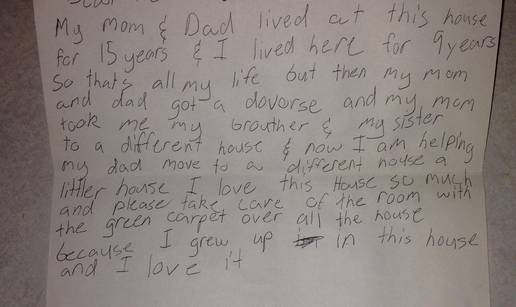 My Mom & Dad lived at this house
for 15 years & I lived here for 9 years
So thats all my life but then my mom
and dad got a dovorse and my mom
took me my brouther & my sister
to a different house & now I am helping
my dad move to a different house a
littler house I love this House so much
and please take care of the room with
the green carpet over all the house
because I grew up in this house
and I love it